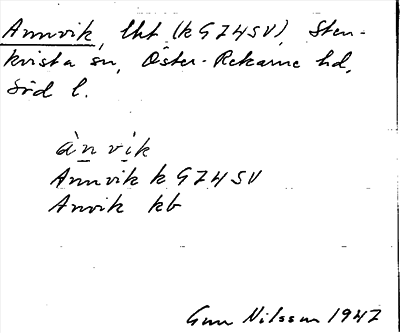 Annvik, lht (k G74SV), Sten-
kvista sn, Öster-Rekarne hd,
Söd l.
ànvik
Annvik k G74SV
Anvik kb
Gun Nilsson 1947